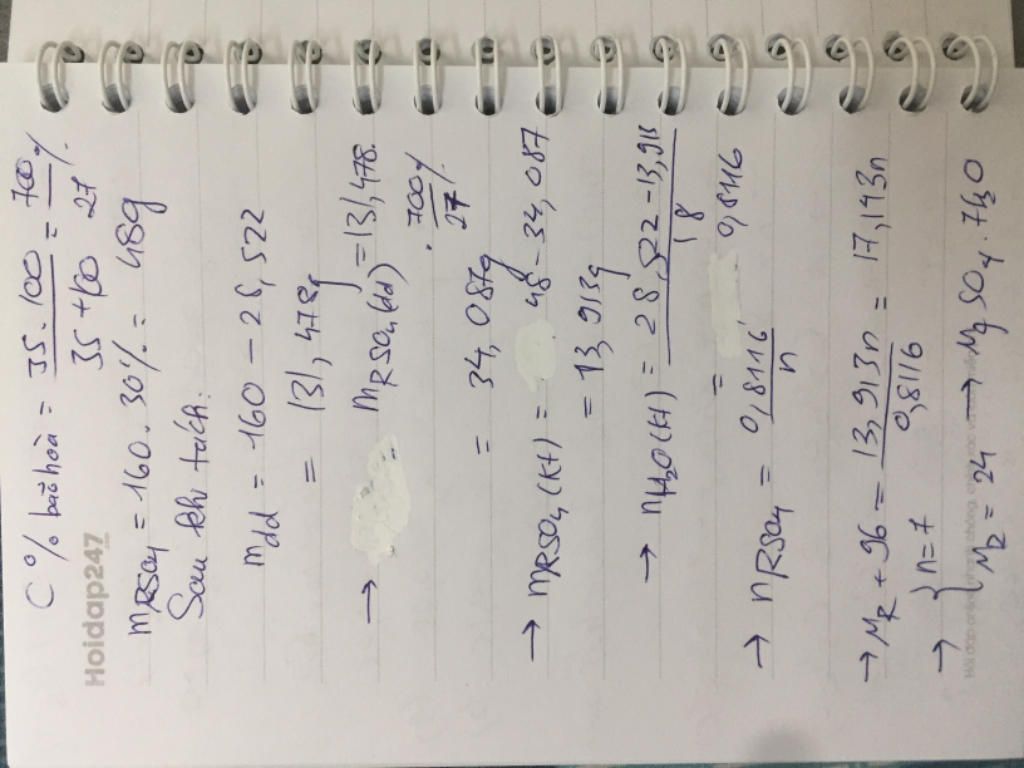 C% bão hoà = 35.100 / 35+100 = 700/27 %.
Hoidap247
mRSO4 = 160.30% = 48g
Sau khi tách:
mdd = 160 - 28,522
= 131,478g
→ mRSO4(dd) = 131,478.
. 700/27 %
= 34,087g
→ mRSO4(kt) = 48 - 34,087
= 13,913g
→ nH2O(kt) = 28,522 - 13,913 / 18
= 0,8116
→ nRSO4 = 0,8116 / n
→ MR + 96 = 13,913n / 0,8116 = 17,143n
→ { n = 7
MR = 24 → MgSO4.7H2O